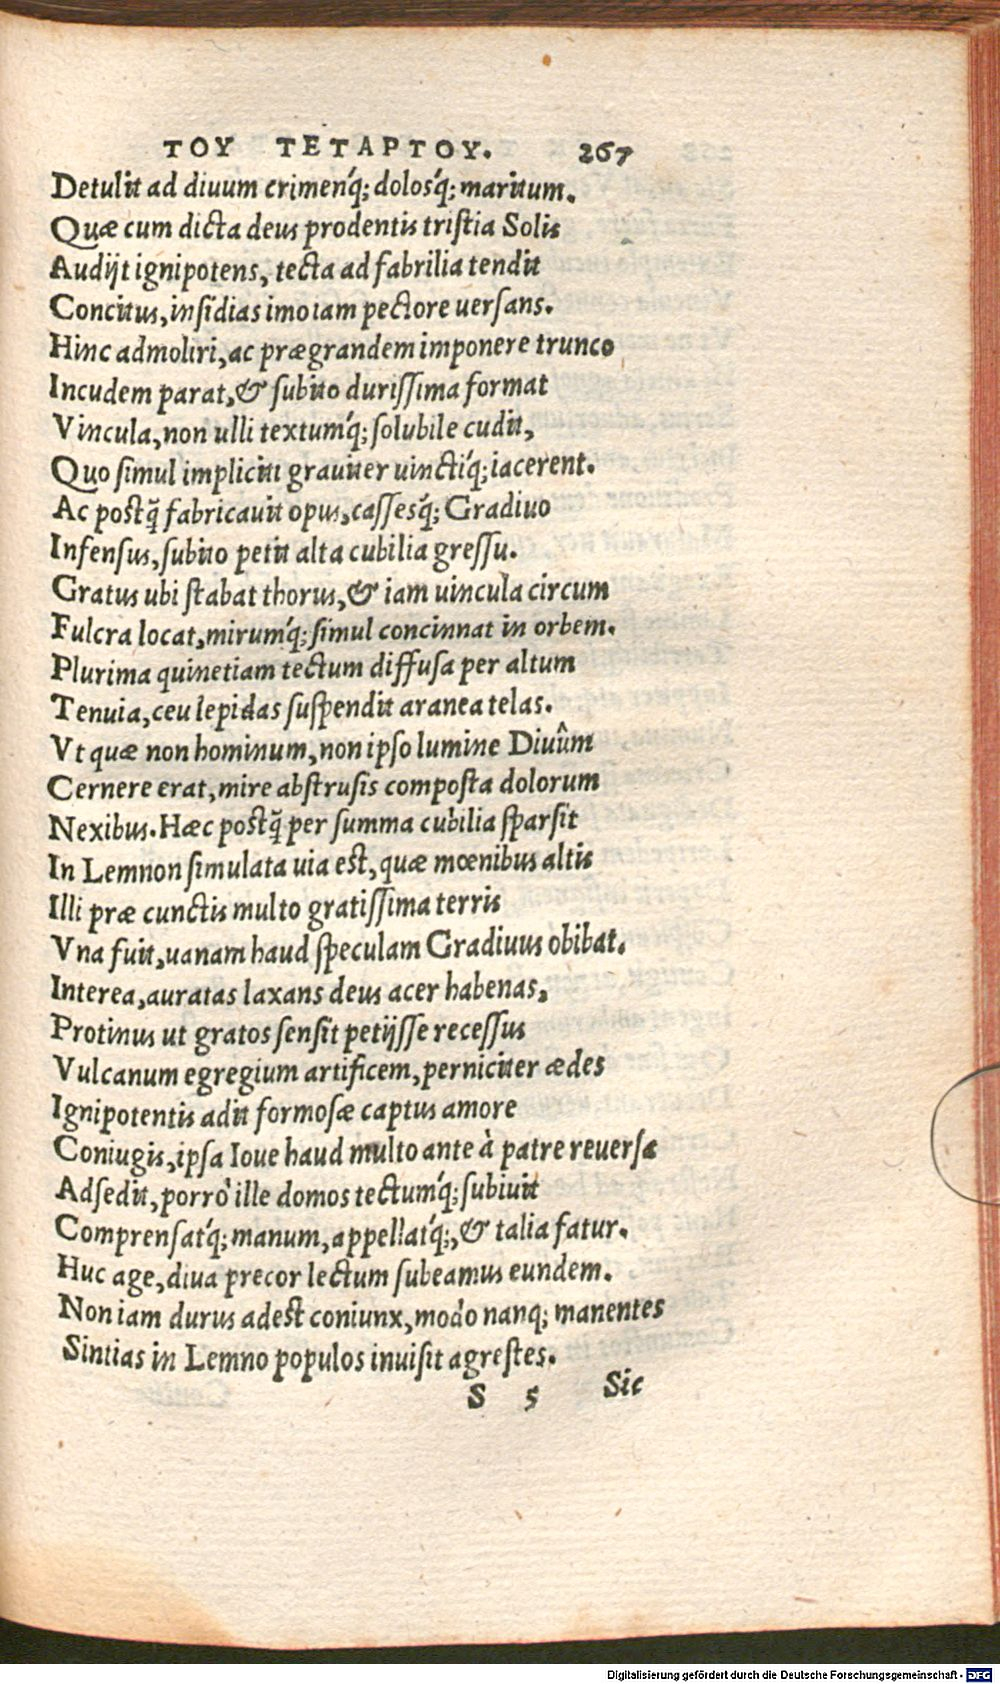 ΤΟΥ ΤΕΤΑΡΤΟΥ. 267
Detulit ad diuum crimen'q; dolos'q; maritum.
Quæ cum dicta deus prodentis tristia Solis
Audijt ignipotens, tecta ad fabrilia tendit
Concitus, insidias imo iam pectore uersans.
Hinc admoliri, ac prægrandem imponere trunco
Incudem parat, & subito durissima format
Vincula, non ulli textum'q; solubile cudit,
Quo simul impliciti grauiter uincti'q; iacerent.
Ac postq̃ fabricauit opus, casses'q; Gradiuo
Infensus, subito petit alta cubilia gressu.
Gratus ubi stabat thorus, & iam uincula circum
Fulcra locat, mirum'q; simul concinnat in orbem.
Plurima quinetiam tectum diffusa per altum
Tenuia, ceu lepidas suspendit aranea telas.
Vt quæ non hominum, non ipso lumine Diuûm
Cernere erat, mire abstrusis composta dolorum
Nexibus. Hæc postq̃ per summa cubilia sparsit
In Lemnon simulata uia est, quæ mœnibus altis
Illi præ cunctis multo gratissima terris
Vna fuit, uanam haud speculam Gradiuus obibat.
Interea, auratas laxans deus acer habenas,
Protinus ut gratos sensit petijsse recessus
Vulcanum egregium artificem, perniciter ædes
Ignipotentis adit formosæ captus amore
Coniugis, ipsa Ioue haud multo ante à patre reuersa
Adsedit, porrò ille domos tectum'q; subiuit
Comprensat'q; manum, appellat'q;, & talia fatur.
Huc age, diua precor lectum subeamus eundem.
Non iam durus adest coniunx, modo nanq; manentes
Sintias in Lemno populos inuisit agrestes.
S 5 Sic